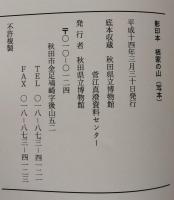 影印本 栖家の山(写本)
平成十四年三月三十日発行
底本収蔵 秋田県立博物館
菅江真澄資料センター
発行者 秋田県立博物館
〒〇一〇-〇一二四
秋田市金足鳰崎字後山五二
TEL 〇一八-八七三-四一二一
FAX 〇一八-八七三-四一二三
不許複製